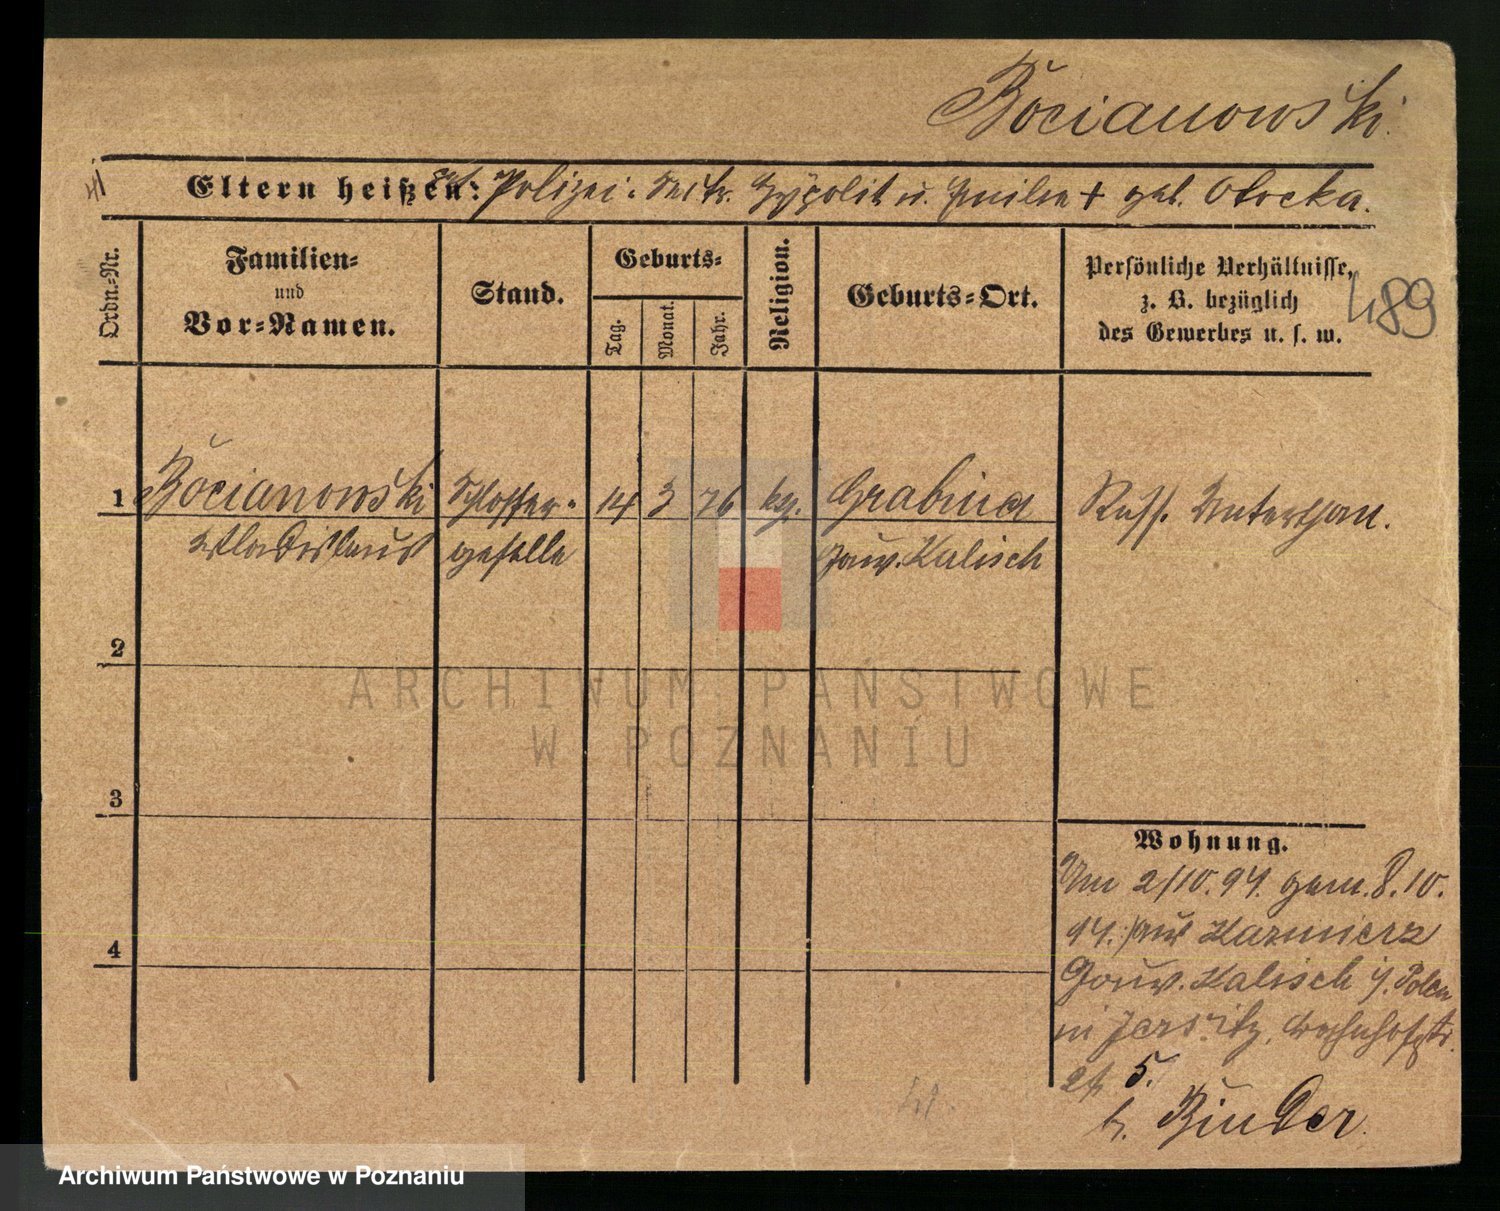 Bocianowski.
Eltern heißen: Polizei: Sekr. Hypolit u. Emilie + geb. Otocka.
Ordn.-Nr.
Familien-
und
Vor-Namen.
Stand.
Geburts-
Tag.
Monat.
Jahr.
Religion.
Geburts-Ort.
Persönliche Verhältnisse,
z. B. bezüglich
des Gewerbes u. s. w.
489
1 Bocianowski Schlosser- 14 3 76 kg. Grabina Russ. Unterthan.
Wladislaus geselle Gouv. Kalisch
2
3
4
Wohnung.
Am 2/10. 94. gem. 8. 10.
94. aus Kazmierz
Gouv. Kalisch i/. Polen
in Jersitz, Bahnhofstr.
5.
b. Binder.
ARCHIWUM PAŃSTWOWE
W POZNANIU
Archiwum Państwowe w Poznaniu